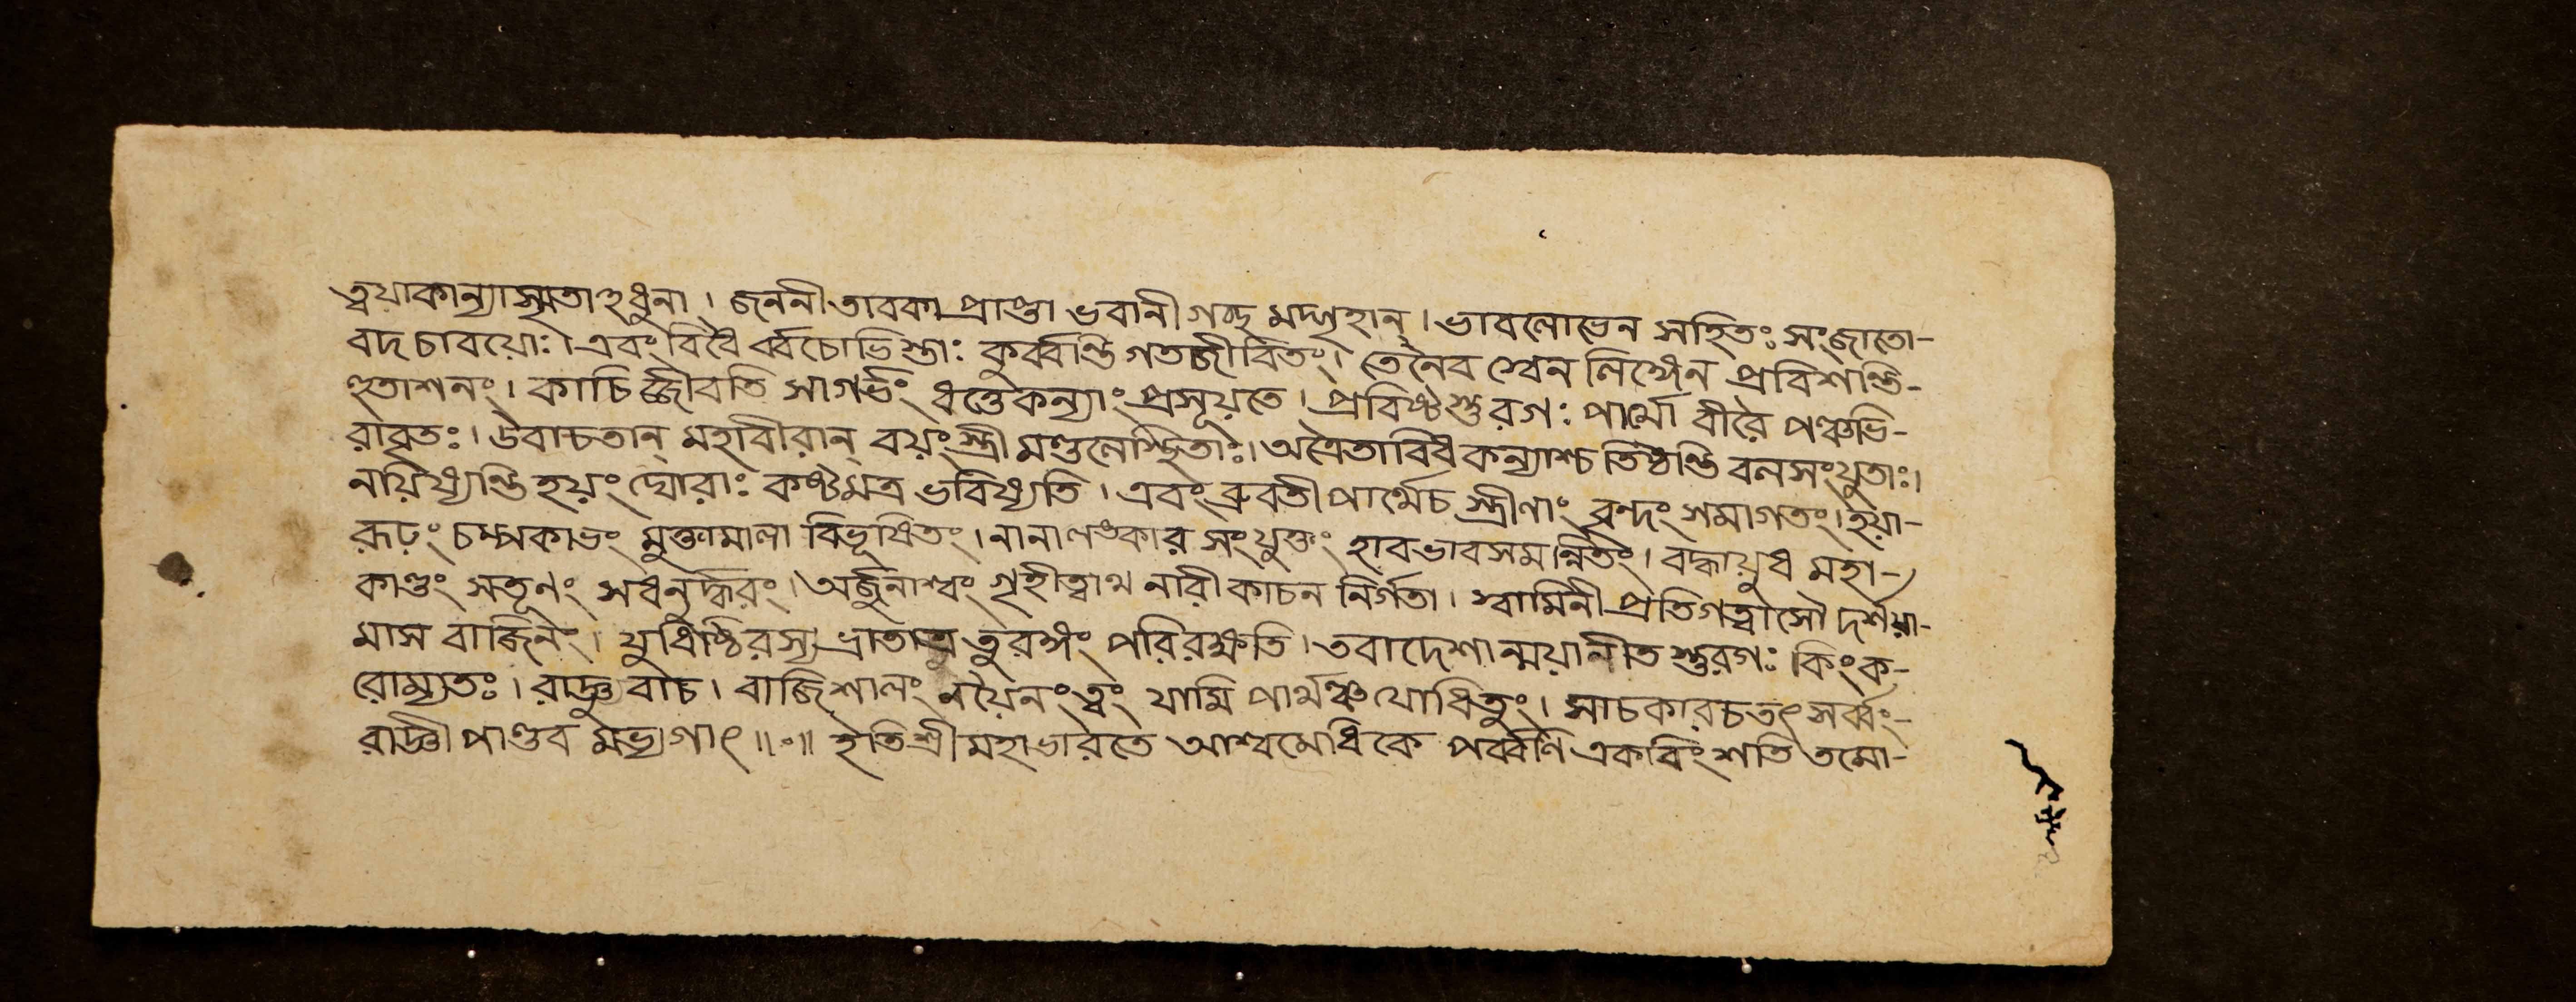 ত্বয়াকান্যাস্মৃতাহধুনা । জননীতাবকা প্রাপ্তা ভবানী গচ্ছ মদ্গৃহান্ । ভাবলোভেন সহিতঃ সংজাতো-
বদ চাবয়োঃ । এবং বিবৈ র্ব্বচোভিস্তাঃ কুর্ব্বন্তি গতজীবিতং । তেনৈব স্বেন লিঙ্গেন প্রবিশন্তি-
হুতাশনং । কাচিজ্জীবতি সাগর্ভং ধত্তেকন্যাং প্রসূয়তে । প্রবিষ্টস্তুরগঃ পার্থো বীরৈ পঞ্চভি-
রাবৃতঃ । উবাচতান্ মহাবীরান্ বয়ং স্ত্রীমণ্ডলেস্থিতাঃ । অত্রৈতাবিষকন্যাশ্চ তিষ্ঠন্তি বলসংযুতাঃ ।
নয়িষ্যন্তি হয়ং ঘোরাঃ কষ্টমত্র ভবিষ্যতি । এবং ব্রুবতীপার্থেচ স্ত্রীণাং বৃন্দং সমাগতং । হয়া-
রূঢ়ং চম্পকাভং মুক্তামালা বিভূষিতং । নানালঙ্কার সংযুক্তং হাবভাবসমন্বিতং । বদ্ধায়ুধ মহা-
কাণ্ডং সতূণং সধনুর্দ্ধরং । অর্জুনাশ্বং গৃহীত্বাথ নারী কাচন নির্গতা । স্বামিনী প্রতিগত্বাসৌ দর্শয়া-
মাস বাজিনং । যুধিষ্ঠিরস্য ভ্রাতাত্র তুরঙ্গং পরিরক্ষতি । তবাদেশান্ময়ানীত স্তুরগঃ কিংক-
রোম্যতঃ । রাজ্ঞ্যুবাচ । বাজিশালং নয়ৈনং ত্বং যামি পার্থঞ্চযোধিতুং । সাচকারচতৎ সর্ব্বং-
রাজ্ঞী পাণ্ডব মভ্যগাৎ ॥০॥ ইতিশ্রীমহাভারতে আশ্বমেধিকে পর্ব্বণি একবিংশতি তমো-